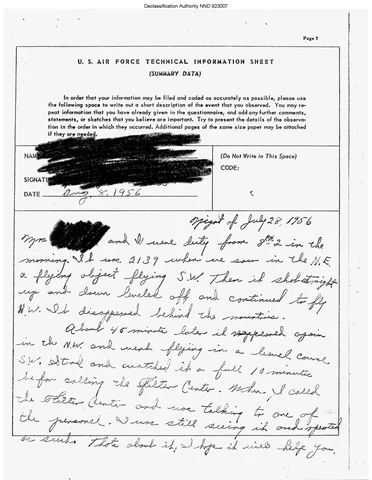 Declassification Authority NND 923007
Page 9
U. S. AIR FORCE TECHNICAL INFORMATION SHEET
(SUMMARY DATA)
In order that your information may be filed and coded as accurately as possible, please use
the following space to write out a short description of the event that you observed. You may re-
peat information that you have already given in the questionnaire, and add any further comments,
statements, or sketches that you believe are important. Try to present the details of the observa-
tion in the order in which they occurred. Additional pages of the same size paper may be attached
if they are needed.
NAM
(Do Not Write in This Space)
CODE:
SIGNATU
DATE Aug, 8, 1956
Night of July 28, 1956
Mrs and I were duty from 8 2 in the
morning. It was 2139 when we saw in the N.E.
a flying object flying S.W. Then it shot straight
up and down leveled off and continued to fly
N.W. It disappeared behind the mountins.
About 45 minute later it reappeared again
in the N.W. and went flying in a level course
S.W. Stood and watched it a full 10 minutes
befor calling the Filter Center. When, I called
the Filter Center and was talking to one of
the personel. I was still seeing it and reported
as such. Thats about it, I hope it will help you.